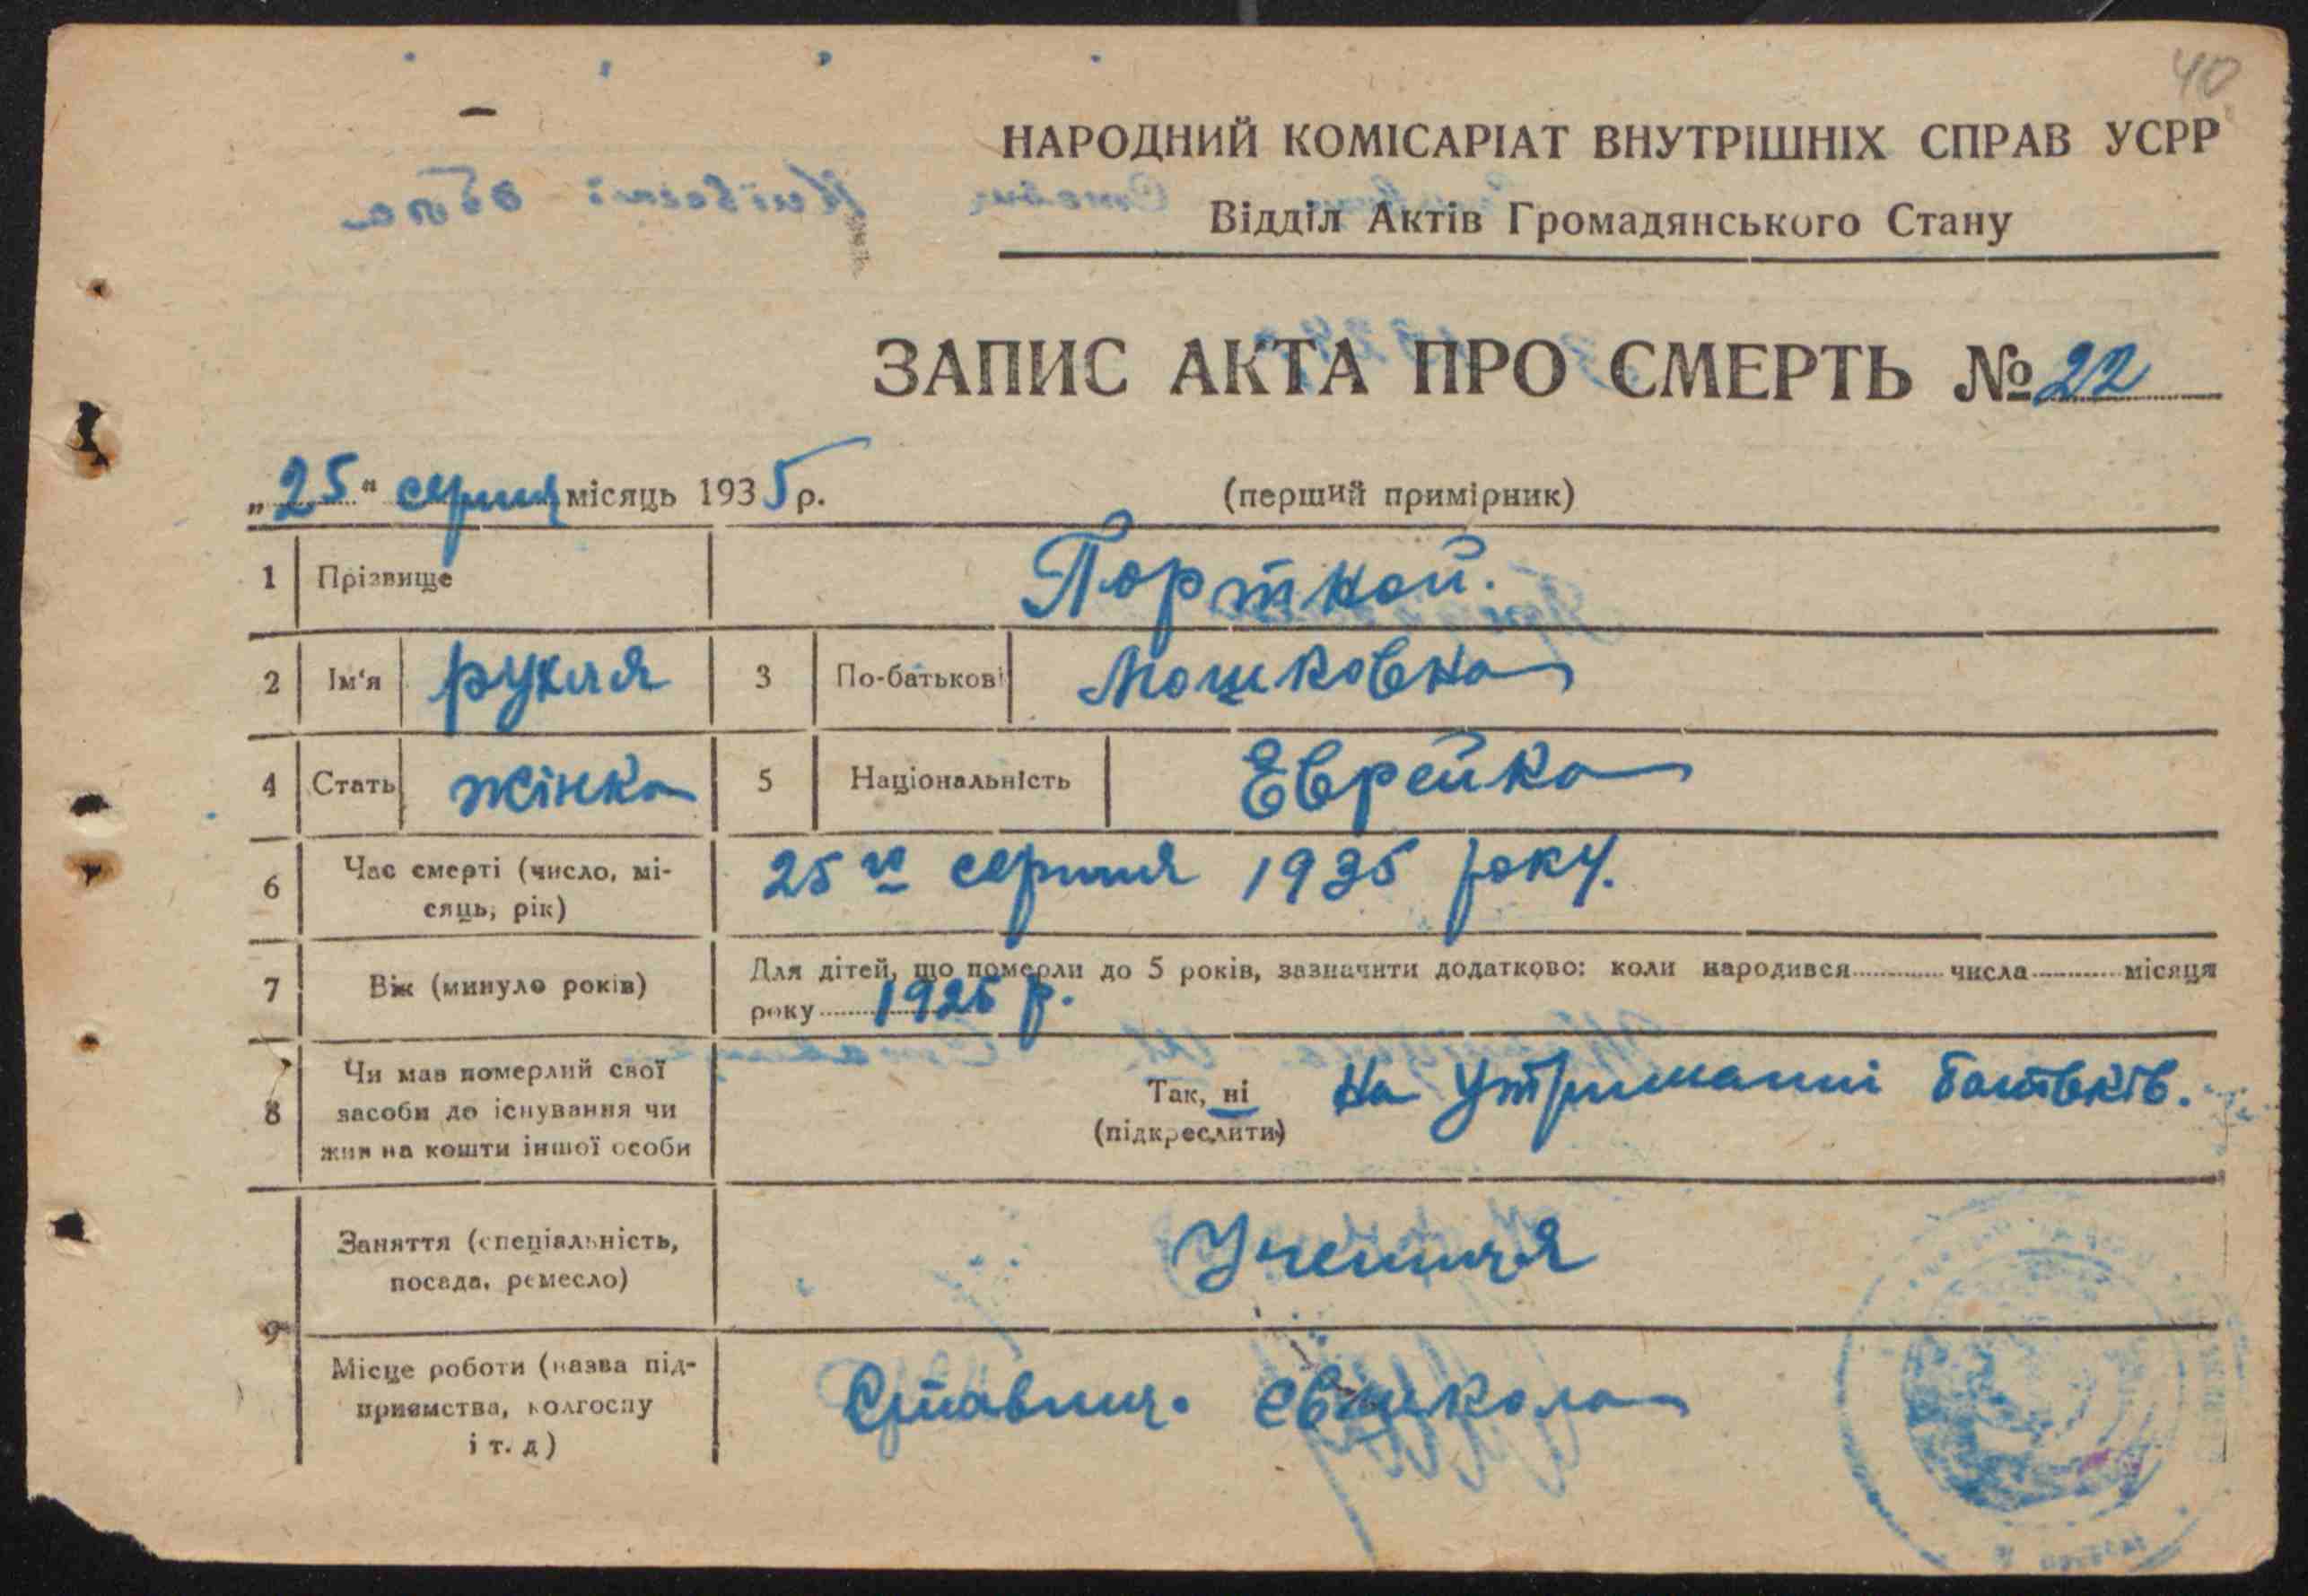 40
НАРОДНИЙ КОМІСАРІАТ ВНУТРІШНІХ СПРАВ УСРР
Відділ Актів Громадянського Стану
ЗАПИС АКТА ПРО СМЕРТЬ № 22
„25“ серпня місяць 1935 р.
(перший примірник)
1 Прізвище Портной.
2 Ім'я рухля 3 По-батькові Мошковна
4 Стать жінка 5 Національність Еврейка
6 Час смерті (число, мі-
сяць, рік)
25го серпня 1935 року.
7 Вік (минуло років)
Для дітей, що померли до 5 років, зазначити додатково: коли народився числа місяця
року 1925 р.
8 Чи мав померлий свої
засоби до існування чи
жив на кошти іншої особи
Так, ні
(підкреслити)
На утриманні батьків.
9 Заняття (спеціальність,
посада, ремесло)
Учениця
Місце роботи (назва під-
приємства, колгоспу
і т. д)
Ставищ. євшкола